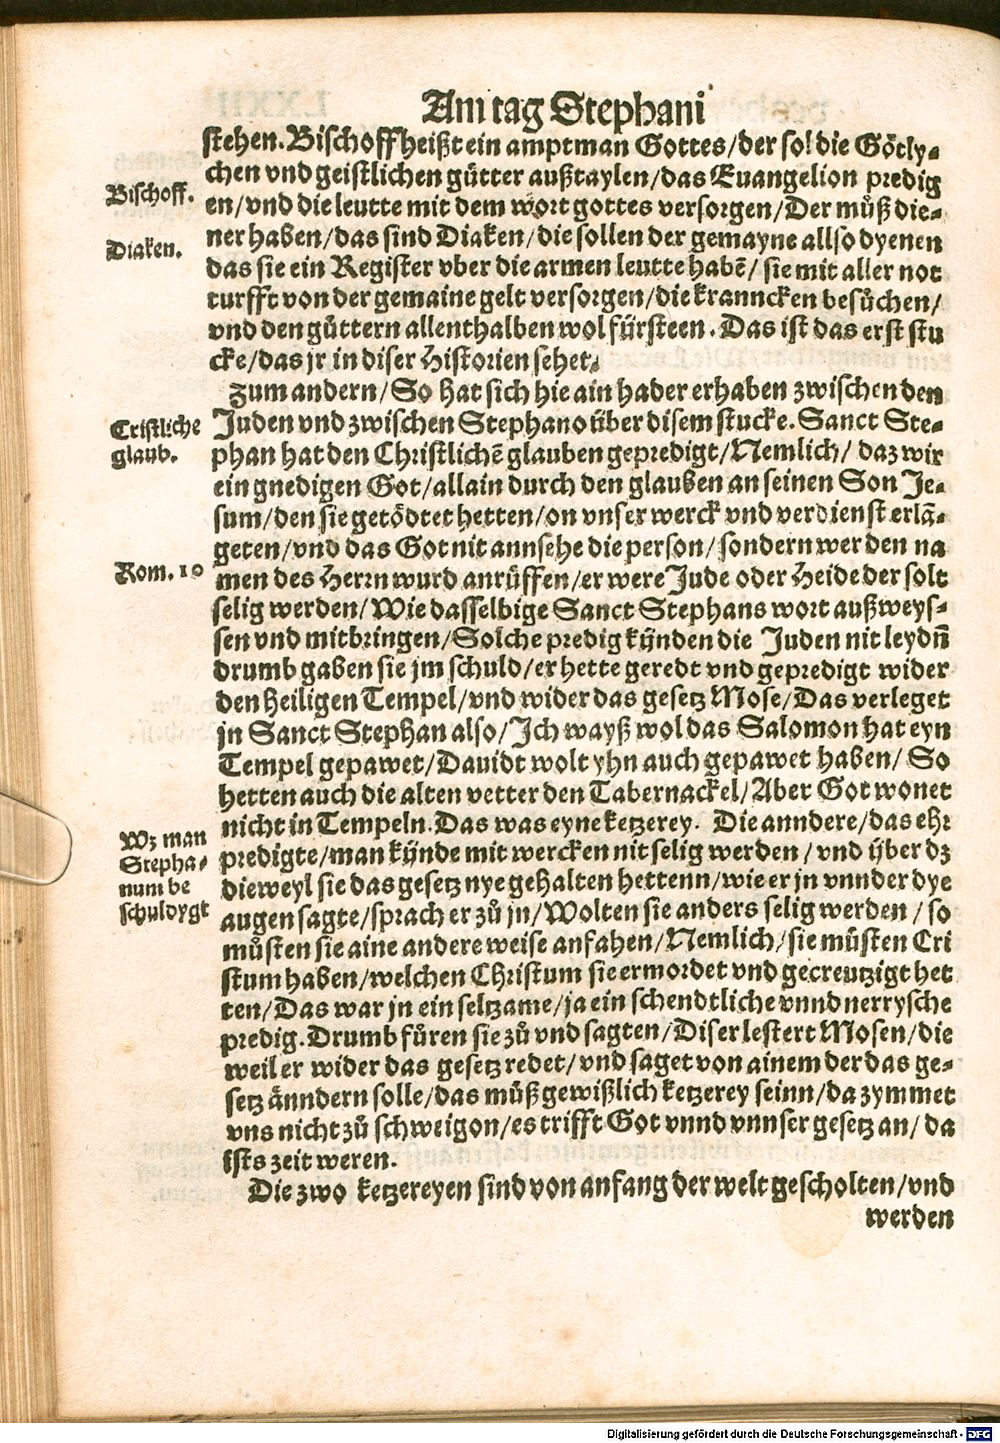 Am tag Stephani
stehen. Bischoff heißt ein amptman Gottes/der sol die Götly⸗
chen vnd geistlichen gütter außtaylen/das Euangelion predig
Bischoff.
en/vnd die leutte mit dem wort gottes versorgen/Der můß die⸗
Diaken.
ner haben/das sind Diaken/die sollen der gemayne allso dyenen
das sie ein Register vber die armen leutte habē/ sie mit aller not
turfft von der gemaine gelt versorgen/die kranncken besůchen/
vnd den güttern allenthalben wol fürsteen. Das ist das erst stu
cke/das jr in diser Historien sehet.
Zum andern/So hat sich hie ain hader erhaben zwischen den
Cristliche
glaub.
Juden vnd zwischen Stephano über disem stucke. Sanct Ste⸗
phan hat den Christlichē glauben gepredigt/Nemlich/ daz wir
ein gnedigen Got/allain durch den glauben an seinen Son Je⸗
sum/den sie getödtet hetten/on vnser werck vnd verdienst erlā⸗
geten/vnd das Got nit annsehe die person/sondern wer den na
Rom. 10
men des Herrn wurd anrüffen/er were Jude oder Heide der solt
selig werden/Wie dasselbige Sanct Stephans wort außweys⸗
sen vnd mitbringen/Solche predig kÿnden die Juden nit leydn̄
drumb gaben sie jm schuld/er hette geredt vnd gepredigt wider
den heiligen Tempel/vnd wider das gesetz Mose/Das verleget
jn Sanct Stephan also/Ich wayß wol das Salomon hat eyn
Tempel gepawet/Dauidt wolt yhn auch gepawet haben/ So
hetten auch die alten vetter den Tabernackel/Aber Got wonet
nicht in Tempeln. Das was eyne ketzerey. Die anndere/das ehr
Wz man
Stepha⸗
num be
schuldygt
predigte/man kÿnde mit wercken nit selig werden/vnd ÿber dz
dieweyl sie das gesetz nye gehalten hettenn/wie er jn vnnder dye
augen sagte/sprach er zů jn/Wolten sie anders selig werden/so
můsten sie aine andere weise anfahen/Nemlich/sie můsten Cri
stum haben/welchen Christum sie ermordet vnd gecreutzigt het
ten/Das war jn ein seltzame/ja ein schendtliche vnnd nerrysche
predig. Drumb fůren sie zů vnd sagten/Diser lestert Mosen/die
weil er wider das gesetz redet/vnd saget von ainem der das ge⸗
setz änndern solle/das můß gewißlich ketzerey seinn/da zymmet
vns nicht zů schweigon/es trifft Got vnnd vnnser gesetz an/da
ists zeit weren.
Die zwo ketzereyen sind von anfang der welt gescholten/vnd
werden
Digitalisierung gefördert durch die Deutsche Forschungsgemeinschaft - DFG